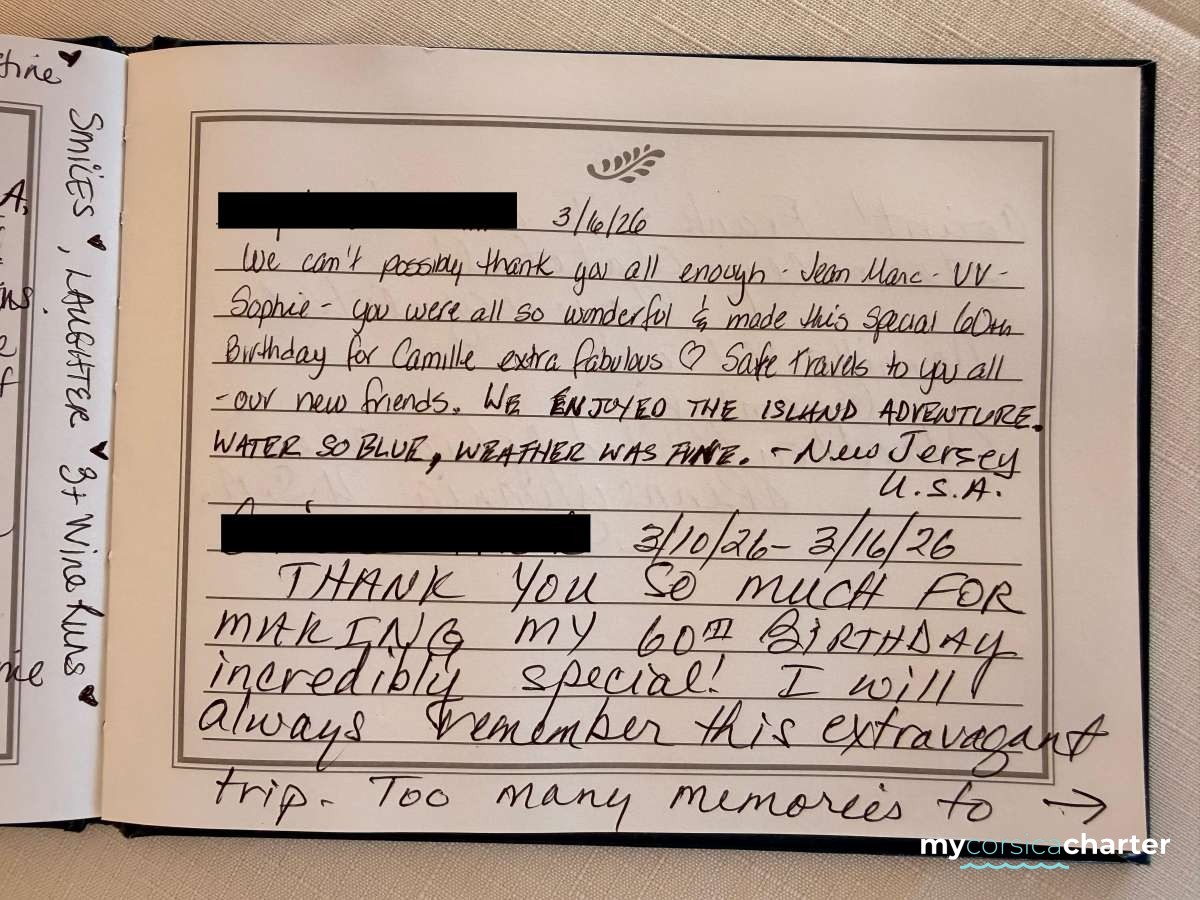 stine
SMILES, LAUGHTER 3+ Wine Runs
A,
ns.
e
f
nie
3/16/26
We can't possibly thank you all enough - Jean Marc - VV -
Sophie - you were all so wonderful & made this special 60th
Birthday for Camille extra fabulous ♡ Safe travels to you all
- our new friends. WE ENJOYED THE ISLAND ADVENTURE.
WATER SO BLUE, WEATHER WAS FINE. - New Jersey
U.S.A.
3/10/26 - 3/16/26
THANK YOU SO MUCH FOR
MAKING MY 60TH BIRTHDAY
incredibly special! I will
always remember this extravagant
trip. Too many memories to →
mycorsicacharter